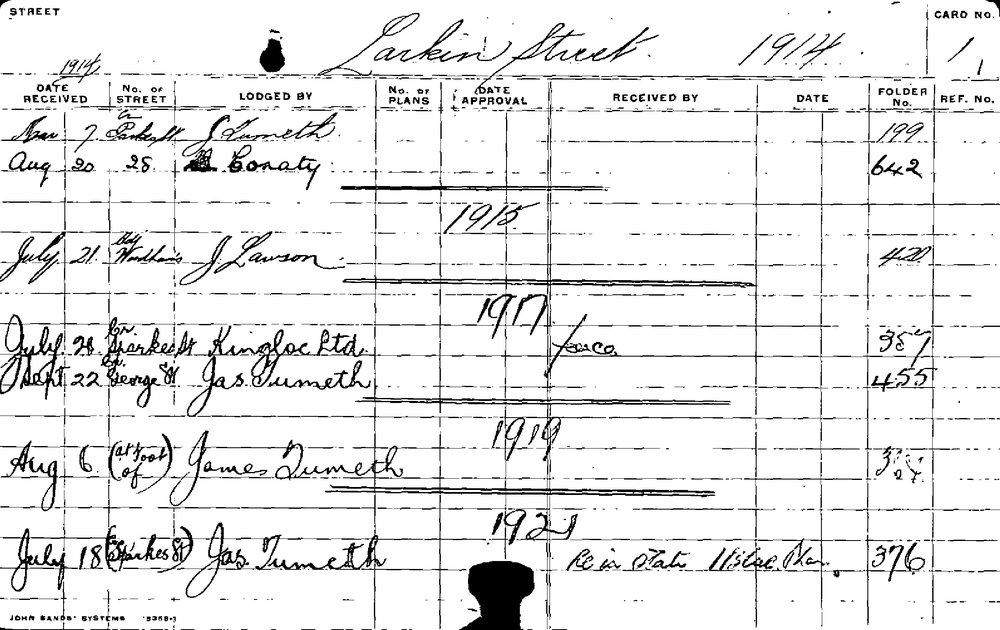 STREET Larkin Street. 1914. CARD NO. 1 1
1914
DATE RECEIVED NO. OF STREET LODGED BY NO. OF PLANS DATE APPROVAL RECEIVED BY DATE FOLDER NO. REF. NO.
7 Cr J Tumeth. 199
Aug 20 28 Conaty 642
1915
July 21 J Lawson 420
1917
July 28 Cr. Sparkes St Kingloc Ltd. 357
Sept 22 Cr. George St Jas. Tumeth 455
1919
Aug 6 (at foot of) James Tumeth
1921
July 18 (Sparkes St) Jas. Tumeth 376
JOHN SANDS' SYSTEMS